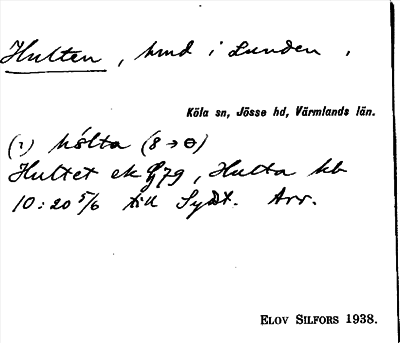 Hulten, hmd i Lunden.
Köla sn, Jösse hd, Värmlands län.
(1) hślta (8 → ɵ)
Hultet ek 79, Hulta kb
10:20 5/6 till Arr.
ELOV SILFORS 1938.